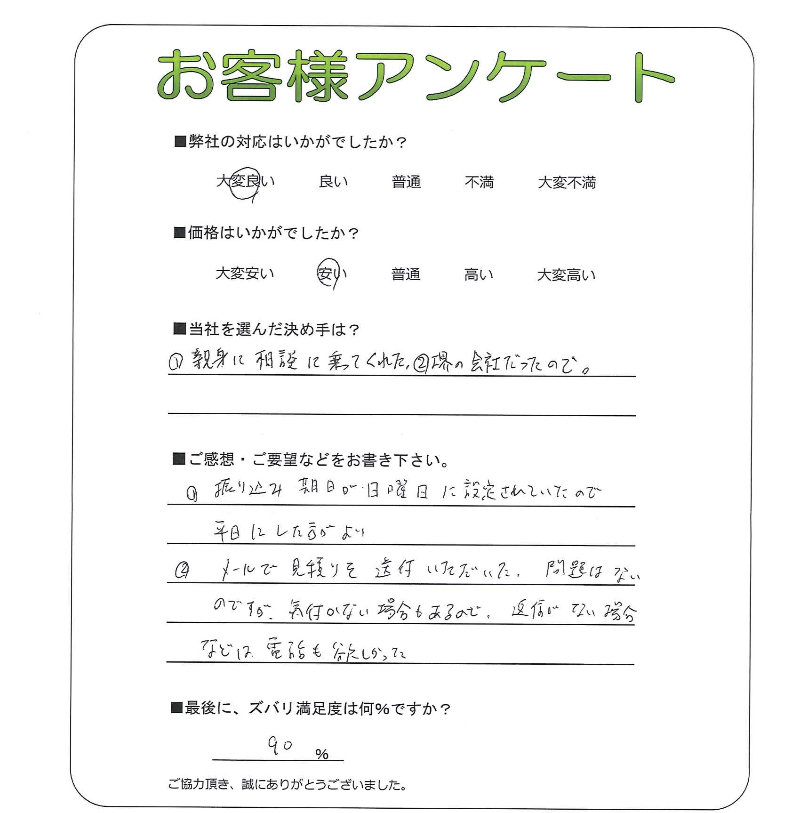 お客様アンケート
■弊社の対応はいかがでしたか？
大変良い 良い 普通 不満 大変不満
■価格はいかがでしたか？
大変安い 安い 普通 高い 大変高い
■当社を選んだ決め手は？
①親身に相談に乗ってくれた,②堺の会社だったので。
■ご感想・ご要望などをお書き下さい。
① 振り込み期日が日曜日に設定されていたので
平日にした方がよい
② メールで見積りを送付いただいた. 問題はない
のですが、気付かない場合もあるので、返信がない場合
などは電話も欲しかった
■最後に、ズバリ満足度は何%ですか？
90 %
ご協力頂き、誠にありがとうございました。